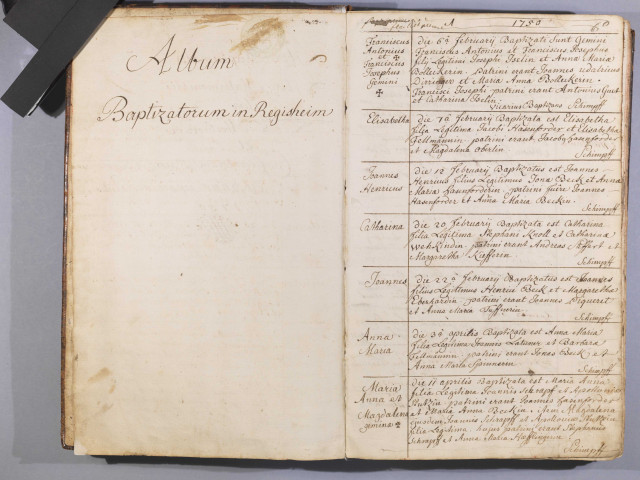 Album
Baptizatorum in Regisheim
1750
Franciscus
Antonius
et
Franciscus
Josephus
Gemini
die 6ª februarij Baptizati Sunt Gemini
Franciscus Antonius et Franciscus Josephus
filij Legitimi Josephi Joelin et Anna Maria
patrini erant Joannes
et Maria Anna
Francisci Josephi patrini erant Antonius
et Catharina Joelin
Vicarius Baptizans Schimpff
Elisabetha
die 7ª februarij Baptizata est Elisabetha
filia Legitima Jacobi Hasenforder et Elisabetha
patrini erant Jacobus
et Magdalena Oberlin
Schimpff
Joannes
Henricus
die 12 februarij Baptizatus est Joannes
Henricus filius Legitimus Jona Beck et Anna
Maria hasenforderin patrini fuere Joannes
Hasenforder et Anna Maria Beckin
Schimpff
Catharina
die 20 februarij Baptizata est Catharina
filia Legitima Stephani Knoll et Catharina
patrini erant Andreas et
Margaretha Kiefferin
Schimpff
Joannes
die 22ª februarij Baptizatus est Joannes
filius Legitimus Henrici Beck et Margaretha
Eberhardin patrini erant Joannes
et Anna Maria
Schimpff
Anna
Maria
die 3ª aprilis Baptizata est Anna Maria
filia Legitima Joannis et Barbara
patrini erant Jonas Beck et
Anna Maria
Schimpff
Maria
Anna et
Magdalena
gemina
die 11 aprilis Baptizata est Maria Anna
filia Legitima Joannis Schrapff et Apollonia
patrini erant Joannes hasenforder
et Maria Anna Beckin. Item Magdalena
ejusdem Joannis Schrapff et Apollonia
filia Legitima hujus patrini erant Stephanus
Schrapff et Anna Maria
Schimpff